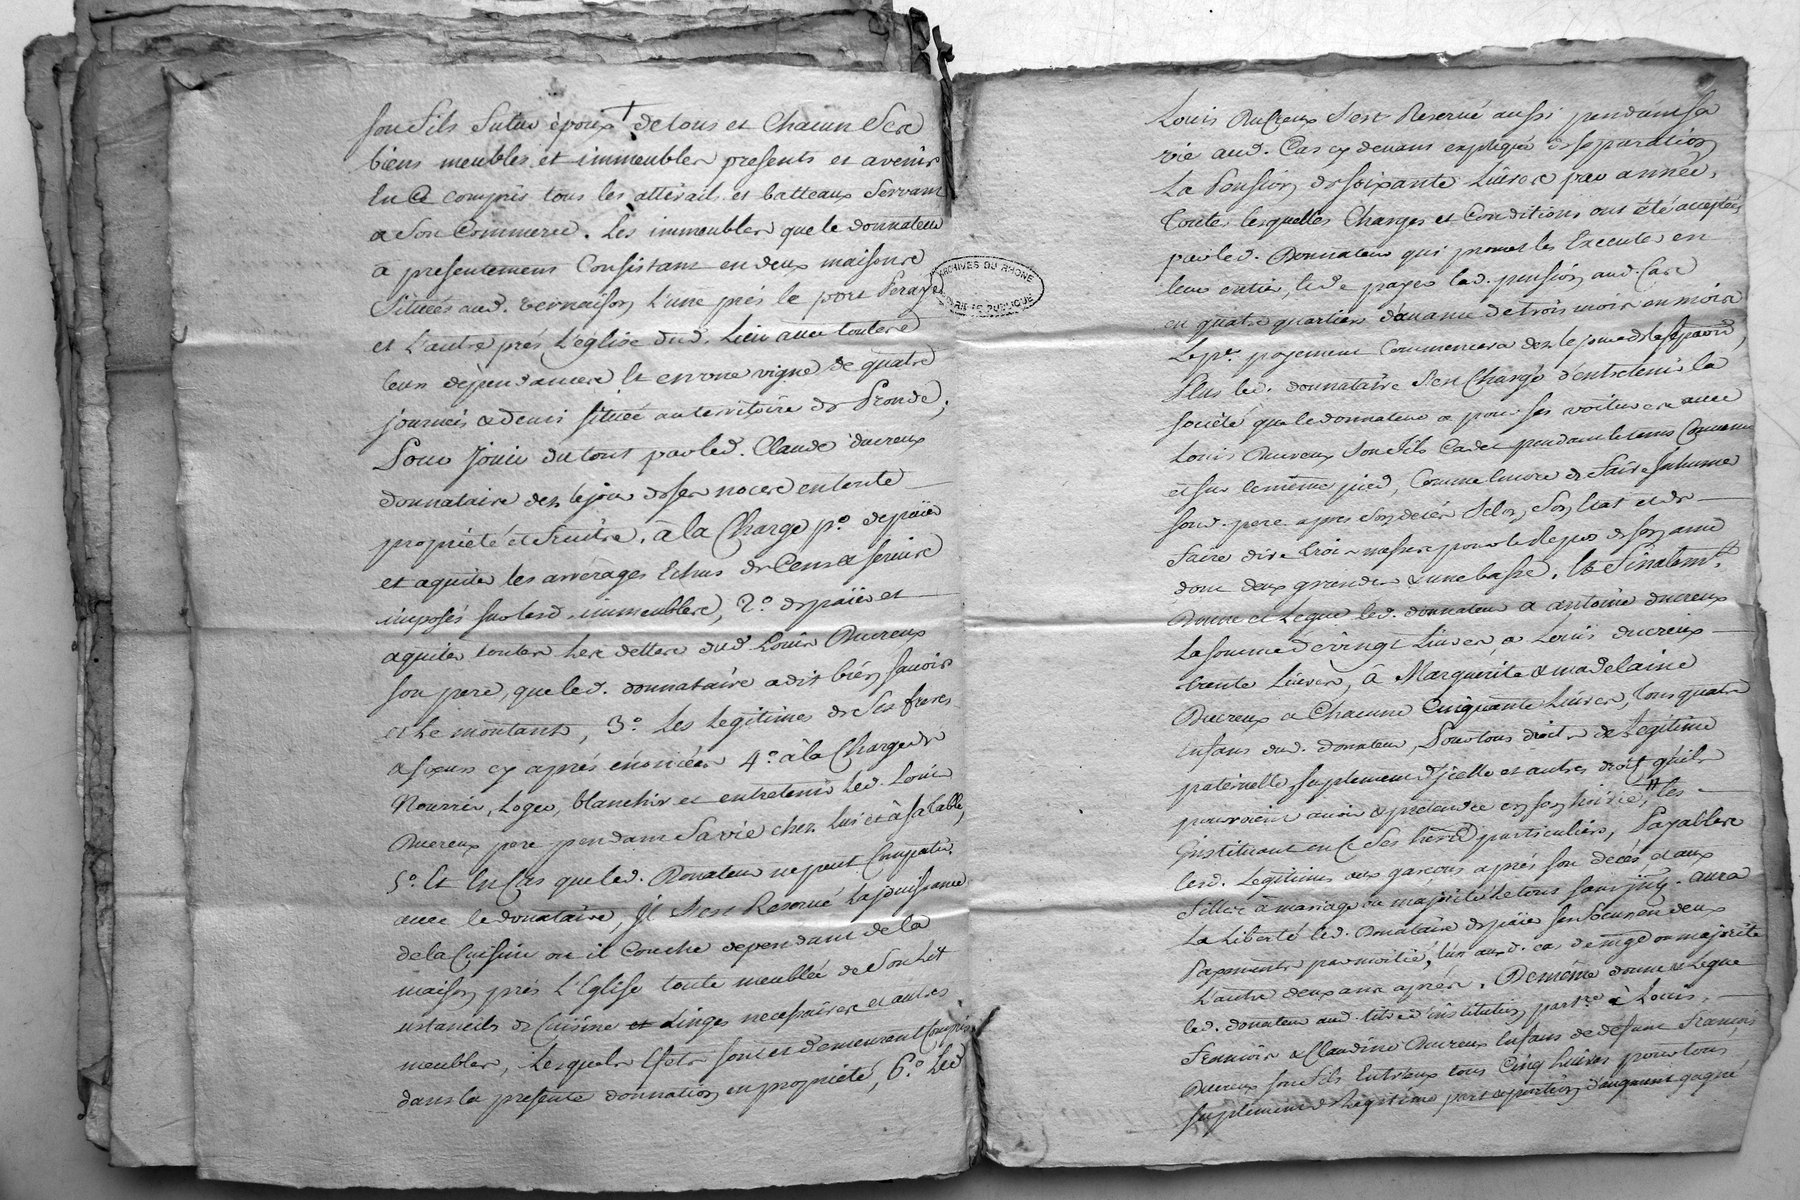 son fils futur époux † de tous et Chacun Ses
biens meubles et immeubles presents et avenir
En Ce compris tous les attirails et batteaux Servant
a Son Commerce. Les immeubles que le donnateur
a presentement Consistant en deux maisons
Situées aud. vernaison L'une prés le port Peraye
et L'autre prés L'église dud. Lieu avec toutes
leurs dependances Et en une vigne de quatre
journées & demi située au territoire de Pronde,
Pour Jouir du tout par led. Claude ducreux
donnataire dez le jour de ses noces en toute
propriété et fruits, à la Charge p.o de païer
et aquiter les arrérages Echus de Cens & servis
imposés sur lesd. immeubles, 2.o de païer et
aquiter toutes les dettes dud Louis Ducreux
son pere, que led. donnataire a dit bien savoir
et Le montant, 3.o Les Legitimes de Ses freres
& soeurs cy aprés énoncées 4.o à la Charge de
Nourrir, Loger, blanchir et entretenir Led. Louis
Ducreux pere pendant Sa vie chez lui et à sa table,
5.o Et En Cas que led. Donateur ne peut Compatir
avec le donataire, Il s'est Reservé La jouissance
de la Cuisine ou il Couche dependant de la
maison prés L'Eglise toute meublée de Son Lit
ustancils de Cuisine et Linges necessaires et autres
meubles, Lesquels Efets sont et demeurent Compris
dans la presente donnation en propriété, 6.o Led
ARCHIVES DU RHONE
PUBLIQUE
Louis Ducreux s'est Reservé aussi pendant sa
vie aud. Cas cy devant expliqué de separation
La Pension de soixante Livres par année,
Toutes lesquelles Charges et Conditions ont été acceptées
par led. Donnateur qui promet les Executer en
leur entier, et de payer lad. pension aud. Cas
en quatre quartiers d'avance de trois mois en mois
Le p.er payement Commencera dez le jour de la separaõn,
Plus led. donnataire s'est Chargé d'entretenir la
société que le donnateur a pour ses voitures avec
Louis Ducreux Son fils Cadet pendant le tems Convenu
et sur le même pied, Comme encore de faire Inhumer
sond. pere apres Son decés Selon Son Etat et de
faire dire trois messes pour le Repos de son ame
dont deux grandes & une basse. Et finalem.t
Donne et Legue led. donnateur a antoine ducreux
La somme de vingt Livres, a Louis ducreux
trente Livres, à Marguerite & madelaine
Ducreux a Chacune Cinquante Livres, tous quatre
Enfans dud. donateur, Pour tous droits de Legitime
paternelle, suplement d'Icelle et autres droits qu'ils
pourroient avoir & pretendre en son hoirie, # les
Instituant en Ce Ses herit.s particuliers, Payables
lesd. Legitimes aux garçons aprés son decés, et aux
filles à mariage ou majorité Le tout sans int.. aura
La Liberté led. Donataire de païer ses soeurs en deux
Payements par moitié, l'un aud. cas de mge ou majorité
L'autre deux ans aprés. De même donne & Legue
led. donateur aud titre d'institution part.re à Louis,
Francois & Claudine Ducreux Enfans de defunt Francois
Ducreux son fils Entr'eux tous Cinq Livres pour tous
suplement de Legitime part & portion d'augment gagné